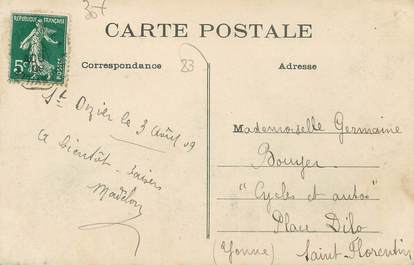 30f
CARTE POSTALE
RÉPUBLIQUE FRANÇAISE
5c
POSTES
Correspondance
83
Adresse
St Dizier le 3 Août 09
a bientôt baisers
Madelon
Mademoiselle Germaine
Bouger
"Cycles et autos"
Place Dilo
(Yonne) Saint-Florentin